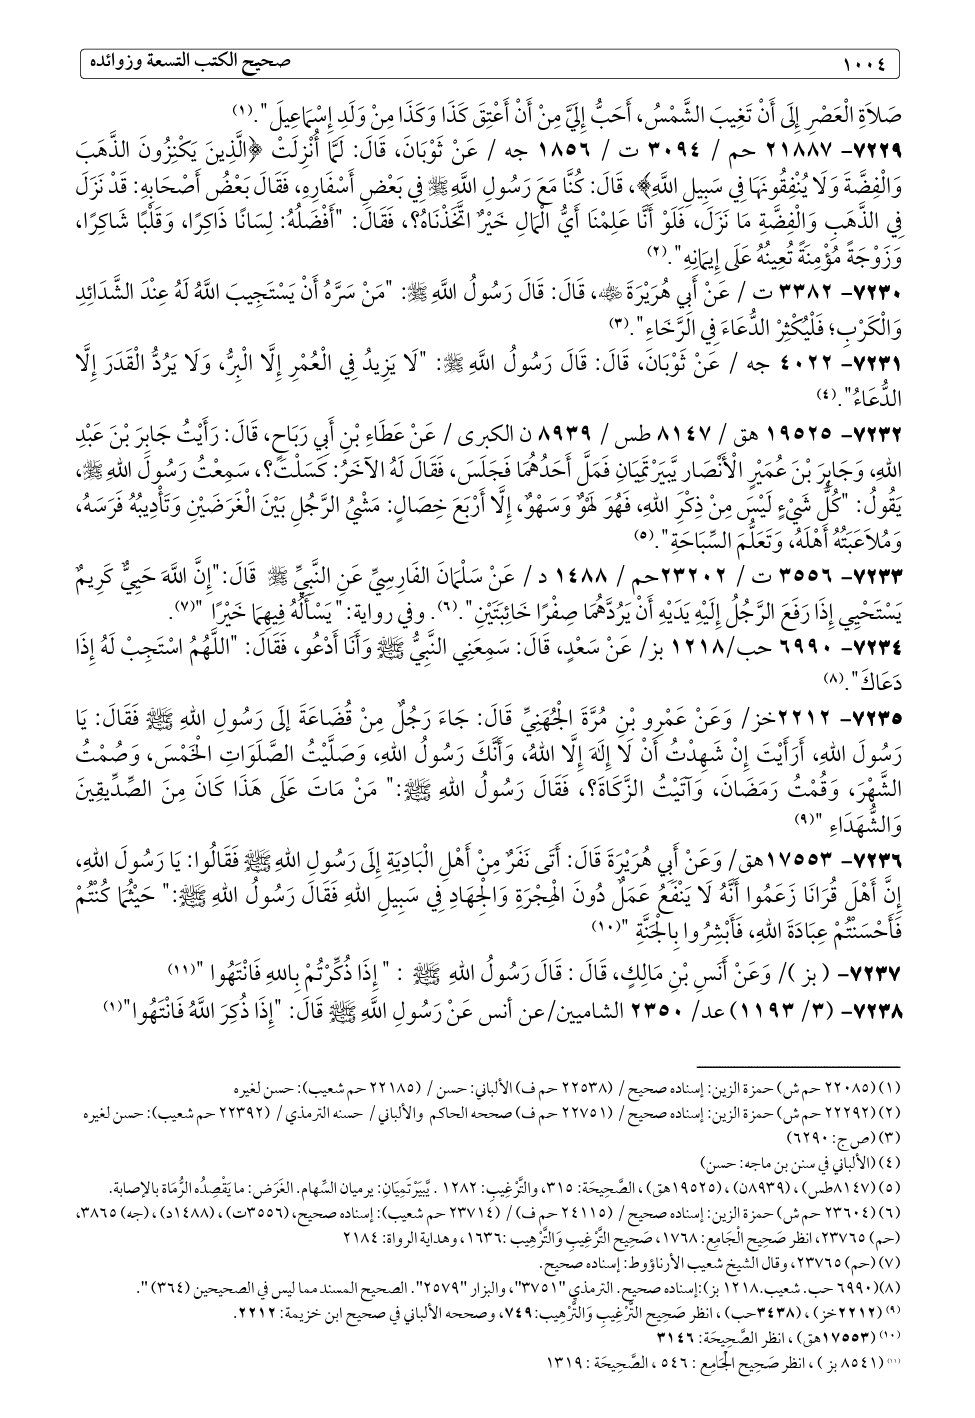 ١٠٠٤ صحيح الكتب التسعة وزوائده
صَلاَةِ الْعَصْرِ إِلَى أَنْ تَغِيبَ الشَّمْسُ، أَحَبُّ إِلَيَّ مِنْ أَنْ أَعْتِقَ كَذَا وَكَذَا مِنْ وَلَدِ إِسْمَاعِيلَ ".(١)
٧٢٢٩- ٢١٨٨٧ حم / ٣٠٩٤ ت / ١٨٥٦ جه / عَنْ ثَوْبَانَ، قَالَ: لَمَّا أُنْزِلَتْ ﴿الَّذِينَ يَكْنِزُونَ الذَّهَبَ
وَالْفِضَّةَ وَلَا يُنْفِقُونَهَا فِي سَبِيلِ اللَّهِ﴾، قَالَ: كُنَّا مَعَ رَسُولِ اللَّهِ ﷺ فِي بَعْضِ أَسْفَارِهِ، فَقَالَ بَعْضُ أَصْحَابِهِ: قَدْ نَزَلَ
فِي الذَّهَبِ وَالْفِضَّةِ مَا نَزَلَ، فَلَوْ أَنَّا عَلِمْنَا أَيُّ الْمَالِ خَيْرٌ اتَّخَذْنَاهُ؟، فَقَالَ: "أَفْضَلُهُ: لِسَانًا ذَاكِرًا، وَقَلْبًا شَاكِرًا،
وَزَوْجَةً مُؤْمِنَةً تُعِينُهُ عَلَى إِيمَانِهِ".(٢)
٧٢٣٠- ٣٣٨٢ ت / عَنْ أَبِي هُرَيْرَةَ ﵁، قَالَ: قَالَ رَسُولُ اللَّهِ ﷺ: "مَنْ سَرَّهُ أَنْ يَسْتَجِيبَ اللَّهُ لَهُ عِنْدَ الشَّدَائِدِ
وَالْكَرْبِ؛ فَلْيُكْثِرْ الدُّعَاءَ فِي الرَّخَاءِ".(٣)
٧٢٣١- ٤٠٢٢ جه / عَنْ ثَوْبَانَ، قَالَ: قَالَ رَسُولُ اللَّهِ ﷺ: "لَا يَزِيدُ فِي الْعُمْرِ إِلَّا الْبِرُّ، وَلَا يَرُدُّ الْقَدَرَ إِلَّا
الدُّعَاءُ".(٤)
٧٢٣٢- ١٩٥٢٥ هق / ٨١٤٧ طس / ٨٩٣٩ ن الكبرى / عَنْ عَطَاءِ بْنِ أَبِي رَبَاحٍ، قَالَ: رَأَيْتُ جَابِرَ بْنَ عَبْدِ
اللهِ، وَجَابِرَ بْنَ عُمَيْرٍ الْأَنْصَارِ يَّيَرْتَمِيَانِ فَمَلَّ أَحَدُهُمَا فَجَلَسَ، فَقَالَ لَهُ الآخَرُ: كَسَلْتَ؟، سَمِعْتُ رَسُولَ اللهِ ﷺ،
يَقُولُ: "كُلُّ شَيْءٍ لَيْسَ مِنْ ذِكْرِ اللهِ، فَهُوَ لَهْوٌ وَسَهْوٌ، إِلَّا أَرْبَعَ خِصَالٍ: مَشْيُ الرَّجُلِ بَيْنَ الْغَرَضَيْنِ وَتَأْدِيبُهُ فَرَسَهُ،
وَمُلاَعَبَتُهُ أَهْلَهُ، وَتَعَلُّمَ السِّبَاحَةِ".(٥)
٧٢٣٣- ٣٥٥٦ ت / ٢٣٢٠٢حم / ١٤٨٨ د / عَنْ سَلْمَانَ الفَارِسِيِّ عَنِ النَّبِيِّ ﷺ قَالَ:"إِنَّ اللَّهَ حَيِيٌّ كَرِيمٌ
يَسْتَحْيِي إِذَا رَفَعَ الرَّجُلُ إِلَيْهِ يَدَيْهِ أَنْ يَرُدَّهُمَا صِفْرًا خَائِبَتَيْنِ".(٦). وفي رواية:" يَسْأَلُهُ فِيهِمَا خَيْرًا "(٧).
٧٢٣٤- ٦٩٩٠ حب/١٢١٨ بز/ عَنْ سَعْدٍ، قَالَ: سَمِعَنِي النَّبِيُّ ﷺ وَأَنَا أَدْعُو، فَقَالَ: "اللَّهُمُ اسْتَجِبْ لَهُ إِذَا
دَعَاكَ".(٨)
٧٢٣٥- ٢٢١٢خز/ وَعَنْ عَمْرِو بْنِ مُرَّةَ الْجُهَنِيِّ قَالَ: جَاءَ رَجُلٌ مِنْ قُضَاعَةَ إِلَى رَسُولِ اللهِ ﷺ فَقَالَ: يَا
رَسُولَ اللهِ، أَرَأَيْتَ إِنْ شَهِدْتُ أَنْ لَا إِلَهَ إِلَّا اللهُ، وَأَنَّكَ رَسُولُ اللهِ، وَصَلَّيْتُ الصَّلَوَاتِ الْخَمْسَ، وَصُمْتُ
الشَّهْرَ، وَقُمْتُ رَمَضَانَ، وَآتَيْتُ الزَّكَاةَ؟، فَقَالَ رَسُولُ اللهِ ﷺ:" مَنْ مَاتَ عَلَى هَذَا كَانَ مِنَ الصِّدِّيقِينَ
وَالشُّهَدَاءِ "(٩)
٧٢٣٦- ١٧٥٥٣هق/ وَعَنْ أَبِي هُرَيْرَةَ قَالَ: أَتَى نَفَرٌ مِنْ أَهْلِ الْبَادِيَةِ إِلَى رَسُولِ اللهِ ﷺ فَقَالُوا: يَا رَسُولَ اللهِ،
إِنَّ أَهْلَ قُرَانَا زَعَمُوا أَنَّهُ لَا يَنْفَعُ عَمَلٌ دُونَ الْهِجْرَةِ وَالْجِهَادِ فِي سَبِيلِ اللهِ فَقَالَ رَسُولُ اللهِ ﷺ:" حَيْثُمَا كُنْتُمْ
فَأَحْسَنْتُمْ عِبَادَةَ اللهِ، فَأَبْشِرُوا بِالْجَنَّةِ "(١٠)
٧٢٣٧- ( بز )/ وَعَنْ أَنَسِ بْنِ مَالِكٍ، قَالَ : قَالَ رَسُولُ اللهِ ﷺ : " إِذَا ذُكِّرْتُمْ بِاللهِ فَانْتَهُوا "(١١)
٧٢٣٨- (٣/ ١١٩٣) عد/ ٢٣٥٠ الشاميين/عن أنس عَنْ رَسُولِ اللَّهِ ﷺ قَالَ: "إِذَا ذُكِرَ اللَّهُ فَانْتَهُوا"(١)
(١)(٢٢٠٨٥ حم ش) حمزة الزين: إسناده صحيح/ (٢٢٥٣٨ حم ف) الألباني: حسن / (٢٢١٨٥ حم شعيب): حسن لغيره
(٢)(٢٢٢٩٢ حم ش) حمزة الزين: إسناده صحيح/ (٢٢٧٥١ حم ف) صححه الحاكم والألباني/ حسنه الترمذي/ (٢٢٣٩٢ حم شعيب): حسن لغيره
(٣)(ص ج: ٦٢٩٠)
(٤)(الألباني في سنن بن ماجه: حسن)
(٥)(٨١٤٧طس) ، (٨٩٣٩ن) ، (١٩٥٢٥هق) ، الصَّحِيحَة: ٣١٥، والتَّرغِيب: ١٢٨٢ . يَّيَرْتَمِيَانِ: يرميان السِّهام. الغَرَض: ما يَقْصِدُه الرُّمَاة بالإصابة.
(٦)(٢٣٦٠٤ حم ش) حمزة الزين: إسناده صحيح / (٢٤١١٥ حم ف)/ (٢٣٧١٤ حم شعيب): إسناده صحيح، (٣٥٥٦ت) ، (١٤٨٨د) ، (جه) ٣٨٦٥،
(حم) ٢٣٧٦٥، انظر صَحِيح الْجَامِع: ١٧٦٨، صَحِيح التَّرْغِيبِ وَالتَّرْهِيب :١٦٣٦، وهداية الرواة: ٢١٨٤
(٧)(حم) ٢٣٧٦٥، وقال الشيخ شعيب الأرناؤوط: إسناده صحيح.
(٨)(٦٩٩٠ حب. شعيب.١٢١٨ بز):إسناده صحيح. الترمذي "٣٧٥١"، والبزار "٢٥٧٩". الصحيح المسند مما ليس في الصحيحين (٣٦٤) ".
(٩)(٢٢١٢خز) ، (٣٤٣٨حب) ، انظر صَحِيح التَّرْغِيبِ وَالتَّرْهِيب: ٧٤٩، وصححه الألباني في صحيح ابن خزيمة: ٢٢١٢.
(١٠)(١٧٥٥٣هق) ، انظر الصَّحِيحَة: ٣١٤٦
(١١)(٨٥٤١ بز ) ، انظر صَحِيح الْجَامِع : ٥٤٦ ، الصَّحِيحَة : ١٣١٩